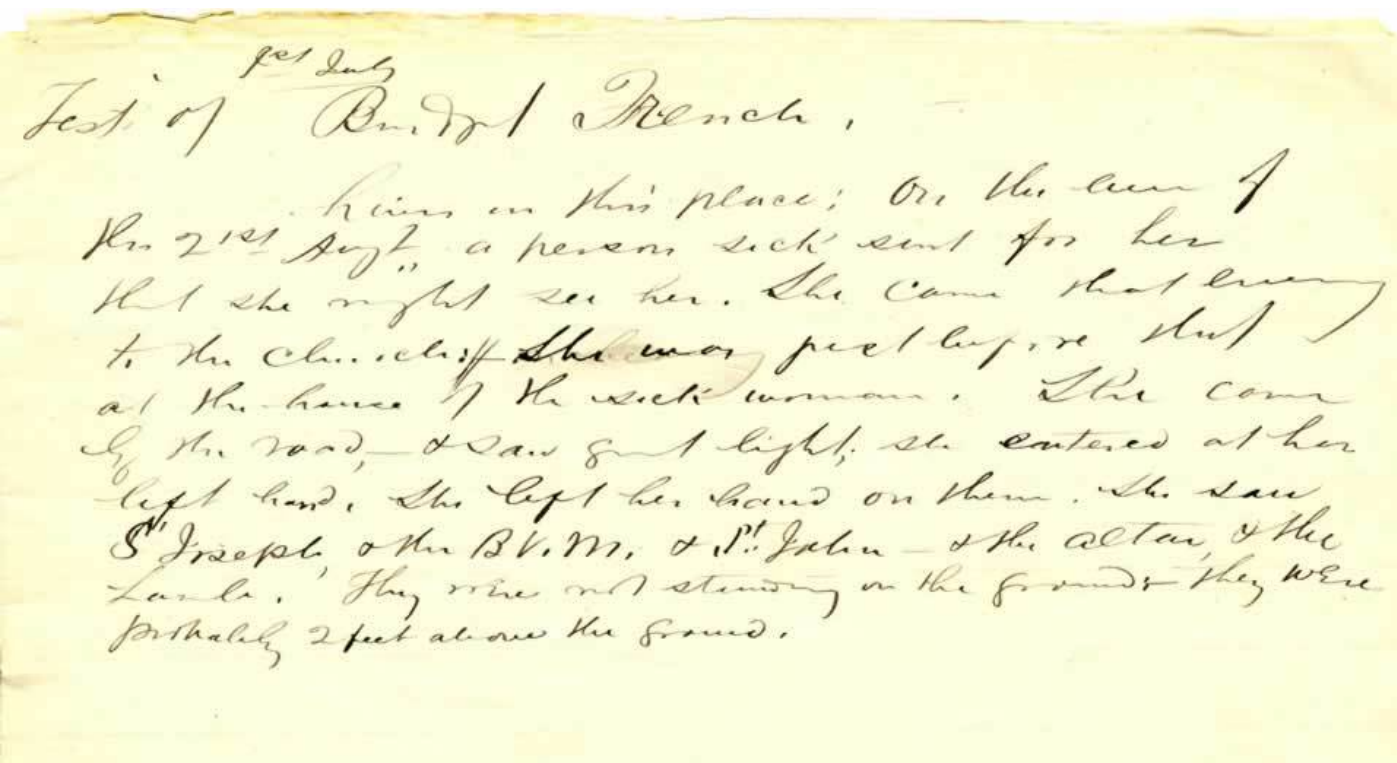 1st July
Test. of Bridget French.
lives in this place; On the even of
the 21st Augt. a person sick sent for her
that she might see her. She came that evening
to the church; she was just before that
at the house of the sick woman. She came
by the road, - & saw great light; she entered at her
left hand. She left her hand on them. She saw
St Joseph, & the B.V.M. & St. John - & the altar, & the
Lamb. They were not standing on the ground; they were
probably 2 feet above the ground.